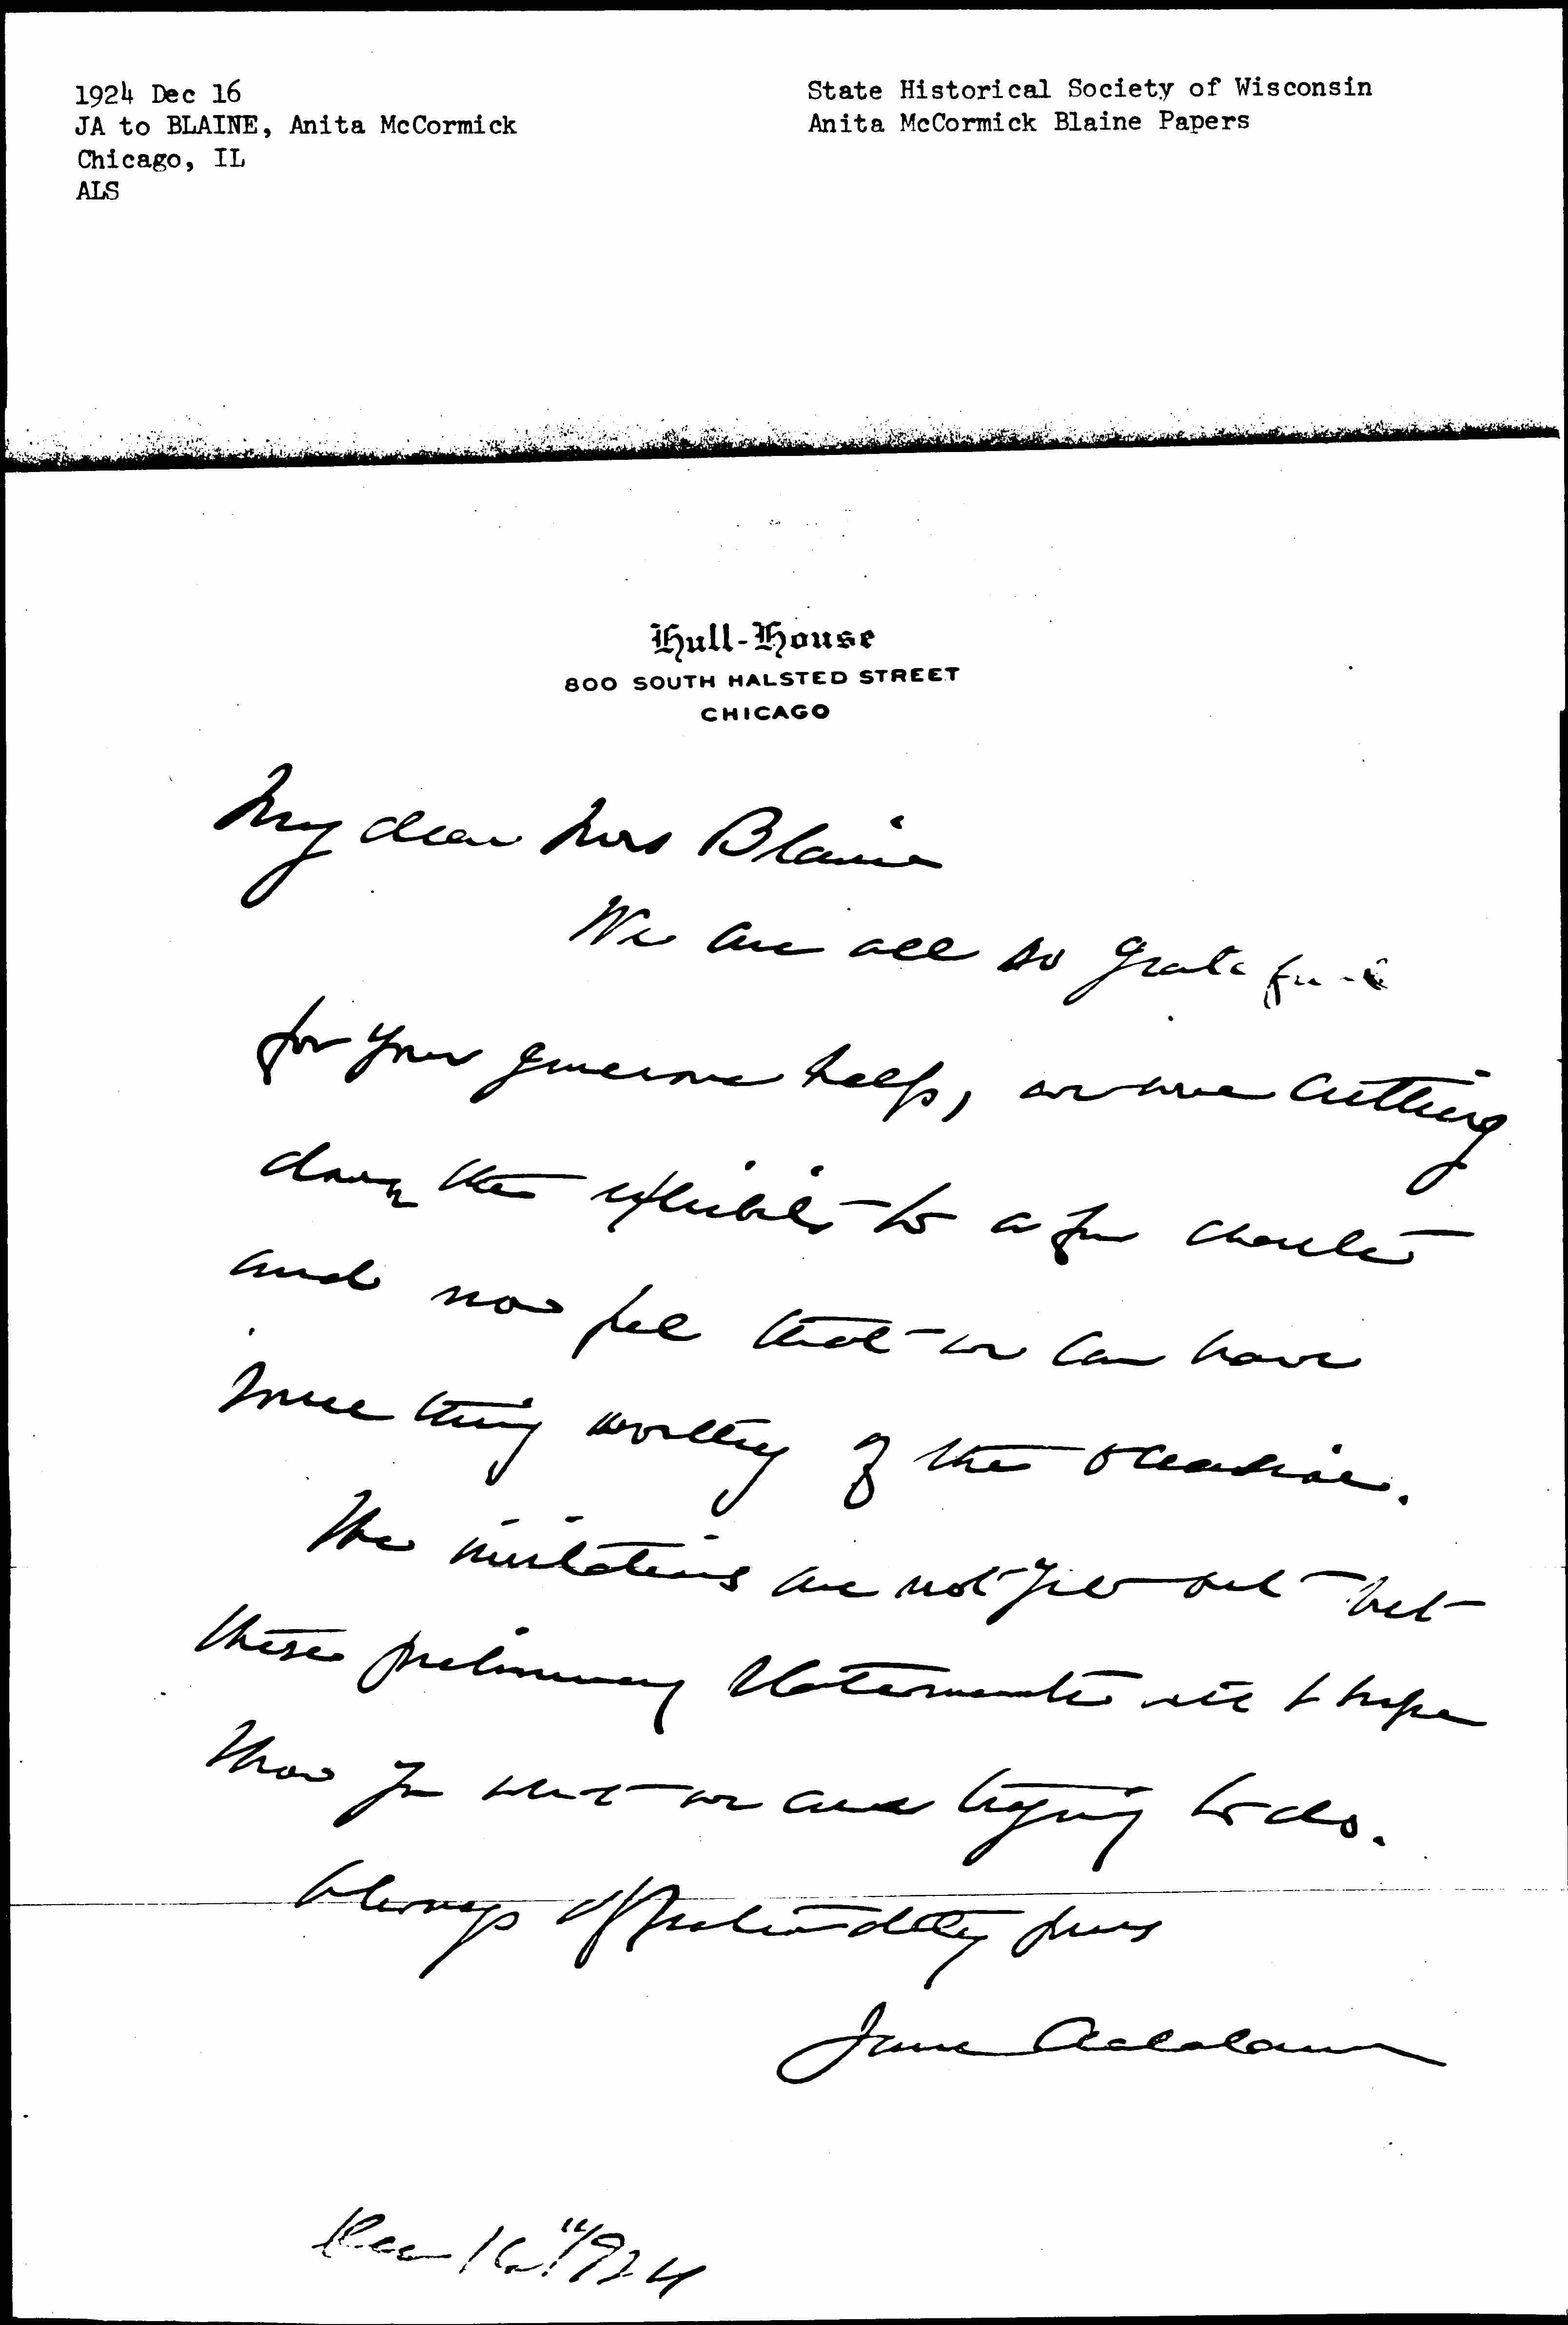 1924 Dec 16
JA to BLAINE, Anita McCormick
Chicago, IL
ALS
State Historical Society of Wisconsin
Anita McCormick Blaine Papers
Hull-House
800 SOUTH HALSTED STREET
CHICAGO
My dear Mrs Blaine
We are all so grateful
for your generous help, we are cutting
down the exhibits to a few
and now feel that we can have
something worthy of the occasion.
The invitations are not yet out but
these preliminary statements will I hope
show you what we are trying to do.
Always affectionately yours
Jane Addams
Dec 16" 1924